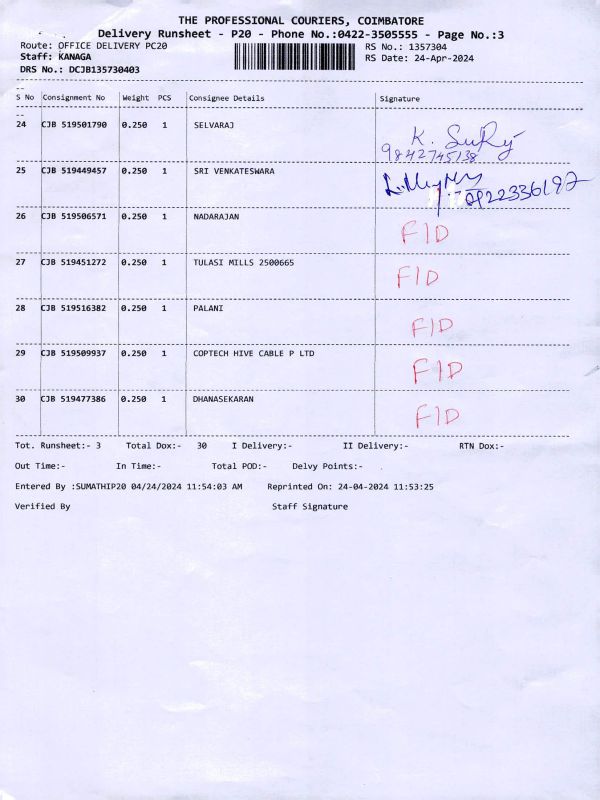 THE PROFESSIONAL COURIERS, COIMBATORE
Delivery Runsheet - P20 - Phone No.:0422-3505555 - Page No.:3
Route: OFFICE DELIVERY PC20 RS No.: 1357304
Staff: KANAGA RS Date: 24-Apr-2024
DRS No.: DCJB135730403
S No Consignment No Weight PCS Consignee Details Signature
24 CJB 519501790 0.250 1 SELVARAJ K.
9842745138
25 CJB 519449457 0.250 1 SRI VENKATESWARA
26 CJB 519506571 0.250 1 NADARAJAN F/D
27 CJB 519451272 0.250 1 TULASI MILLS 2500665 F/D
28 CJB 519516382 0.250 1 PALANI F/D
29 CJB 519509937 0.250 1 COPTECH HIVE CABLE P LTD F/D
30 CJB 519477386 0.250 1 DHANASEKARAN F/D
Tot. Runsheet:- 3 Total Dox:- 30 I Delivery:- II Delivery:- RTN Dox:-
Out Time:- In Time:- Total POD:- Delvy Points:-
Entered By :SUMATHIP20 04/24/2024 11:54:03 AM Reprinted On: 24-04-2024 11:53:25
Verified By Staff Signature